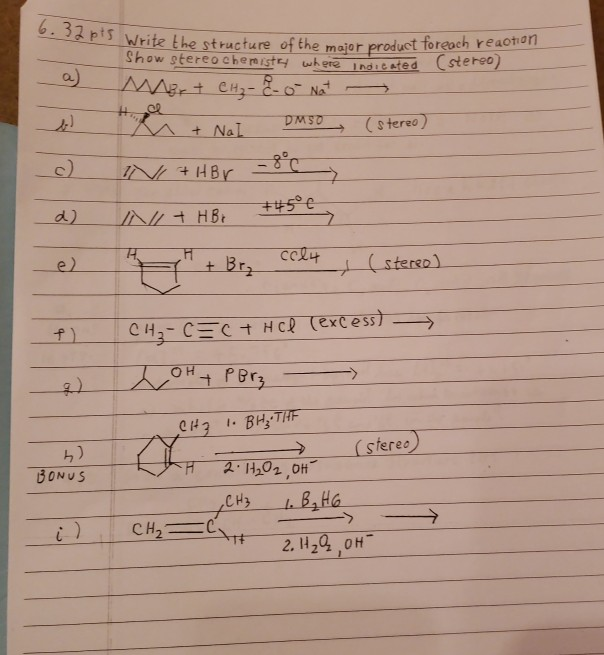 6. 32 pts Write the structure of the major product for each reaction
Show stereochemistry where indicated (stereo)
a) Br + CH3-C-O⁻ Na⁺ →
O
b) H Cl + NaI DMSO → (stereo)
c) + HBr -8°C →
d) + HBr +45°C →
e) H H + Br2 CCl4 → (stereo)
f) CH3-C≡C + HCl (excess) →
g) OH + PBr3 →
h) CH3 H 1. BH3·THF → (stereo)
BONUS 2. H2O2, OH⁻
i) CH2=C CH3 H 1. B2H6 → →
2. H2O2, OH⁻